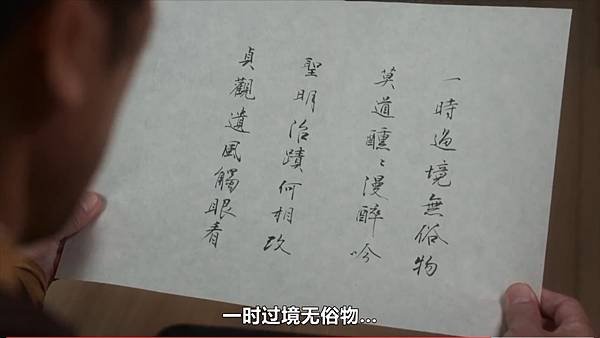 一時過境無俗物
莫道醺〻漫醉吟
聖明治蹟何相攷
貞觀遺風觸眼看
一时过境无俗物...